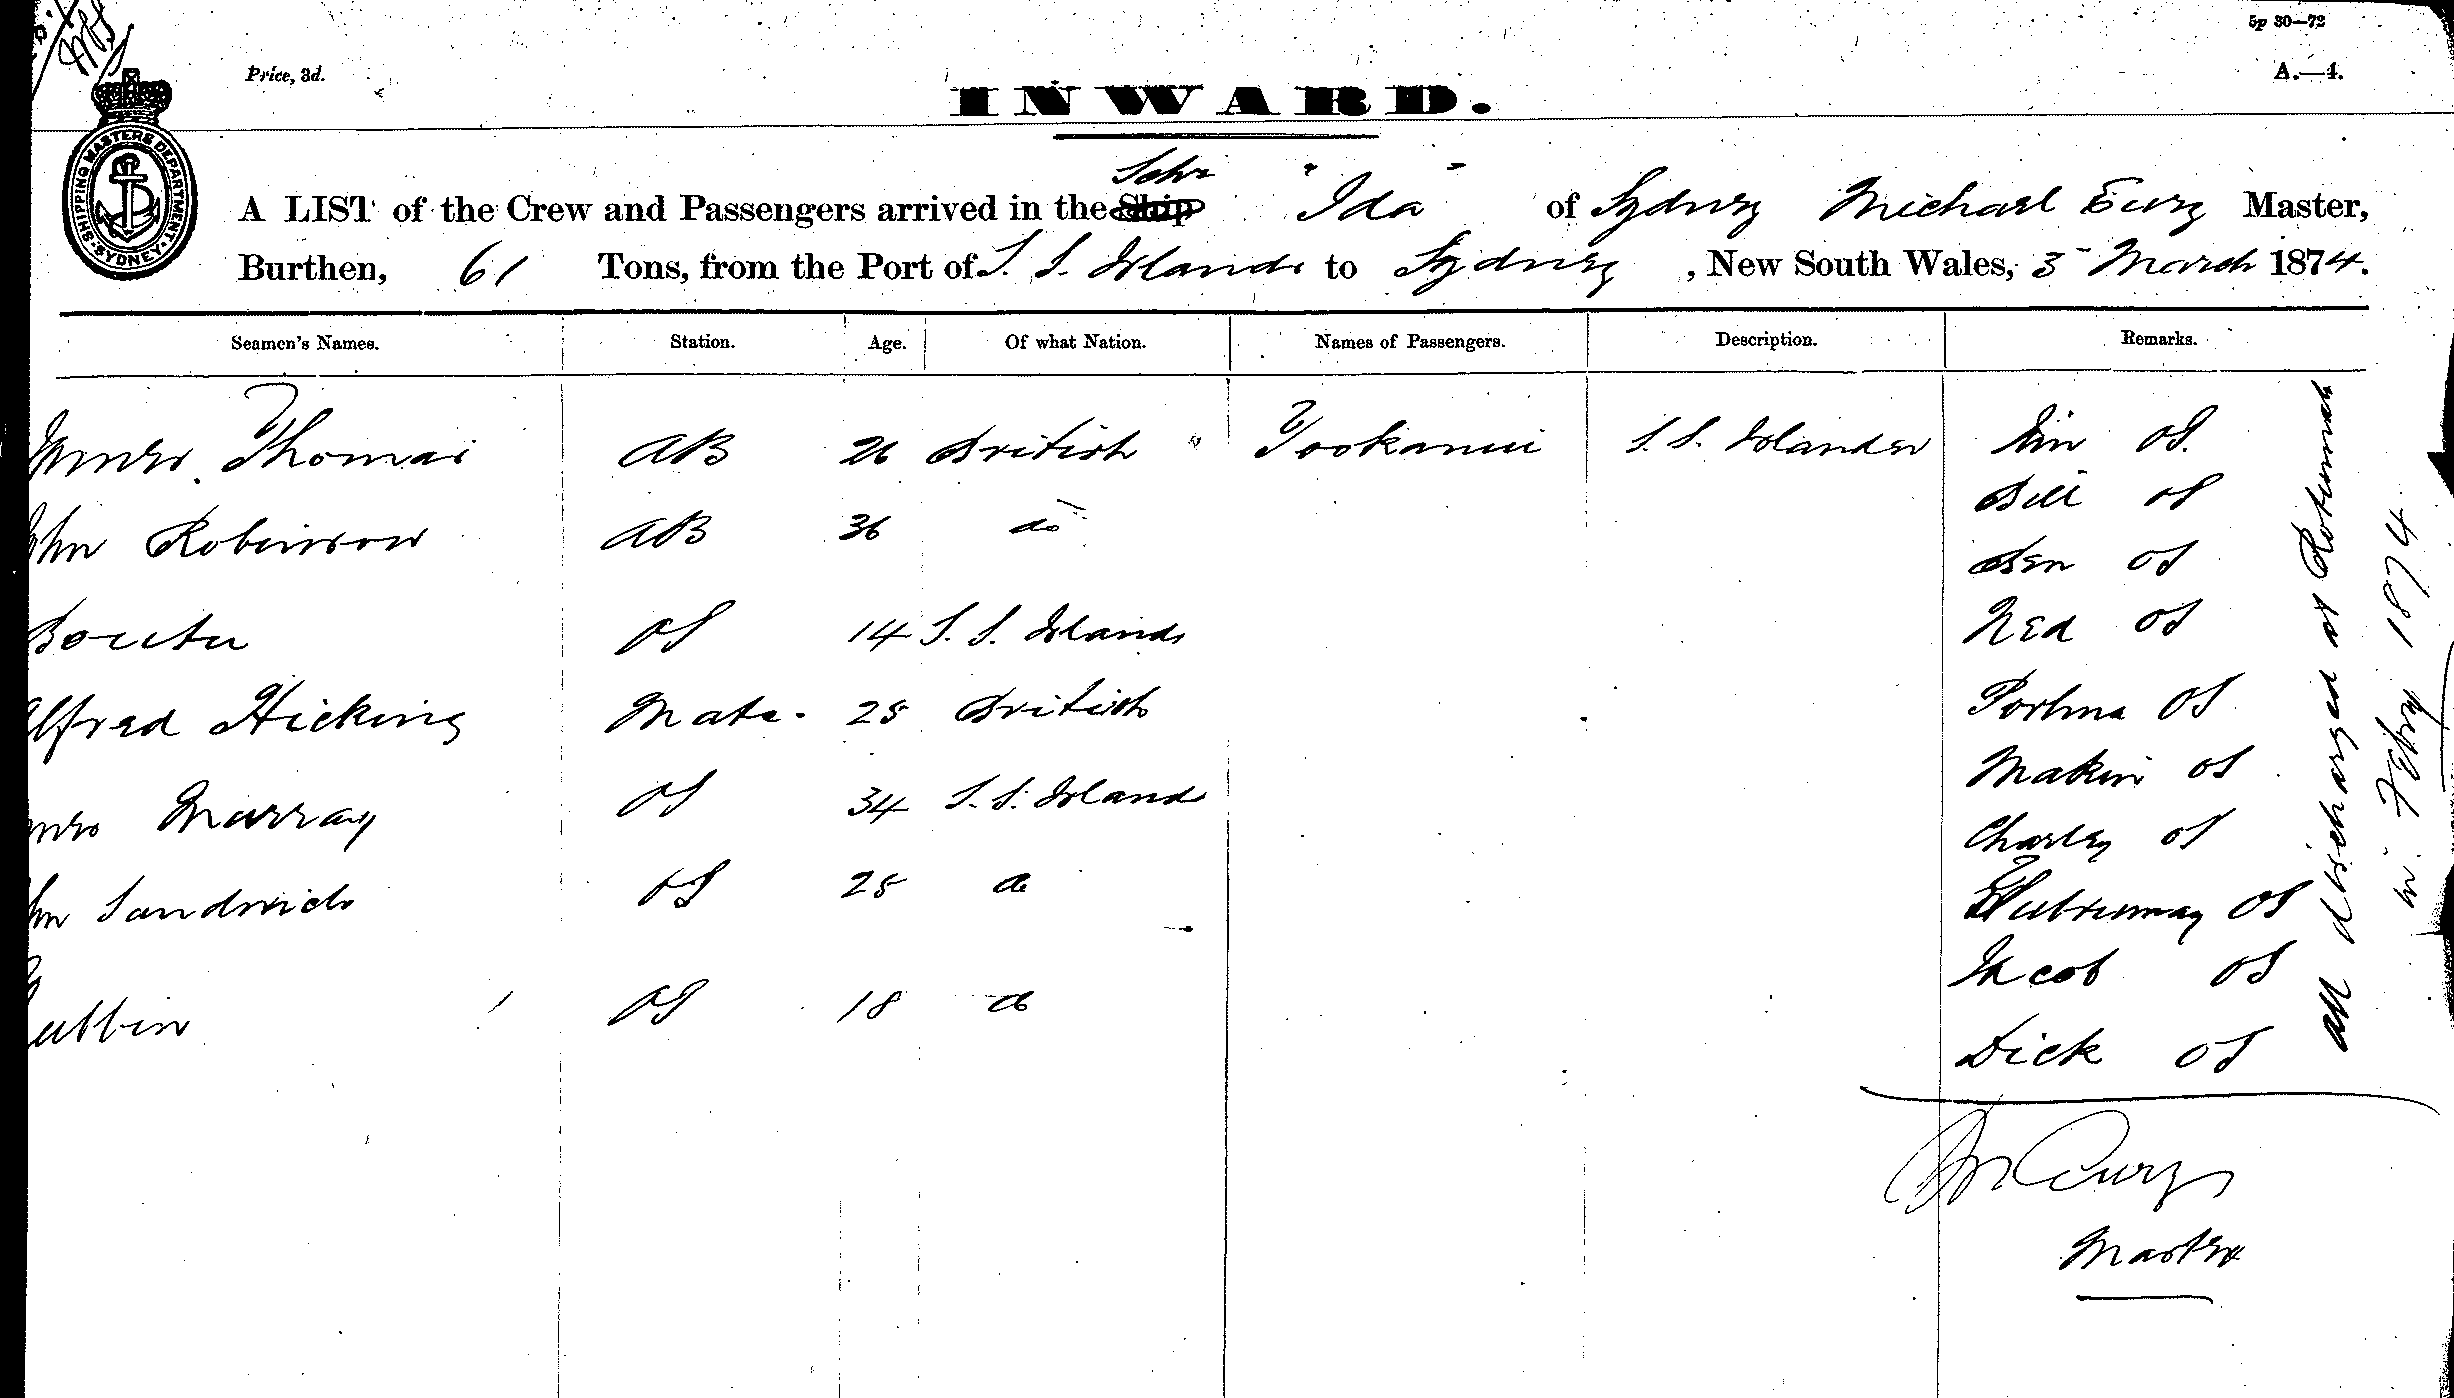 5p 30—72
Price, 3d.
A.—4.
INWARD.
SHIPPING MASTERS DEPARTMENT. SYDNEY
A LIST of the Crew and Passengers arrived in the Ship Schr "Ida" of Sydney Michael Master,
Burthen, 61 Tons, from the Port of S. S. Islands to Sydney, New South Wales, 3 March 1874.
Seamen's Names. Station. Age. Of what Nation. Names of Passengers. Description. Remarks.
Thomas AB 26 British " S. S. Islander OS.
Bill OS
John Robinson AB 36 do
Ben OS
OS 14 S. S. Islands Ned OS
Alfred Hicking Mate. 25 British OS
Murray OS 34 S. S. Island OS
Charley OS
John Sandwich OS 25 do OS
Jacob OS
OS 18 do
Dick OS
all discharged at Rotumah
in Feby 1874
Master